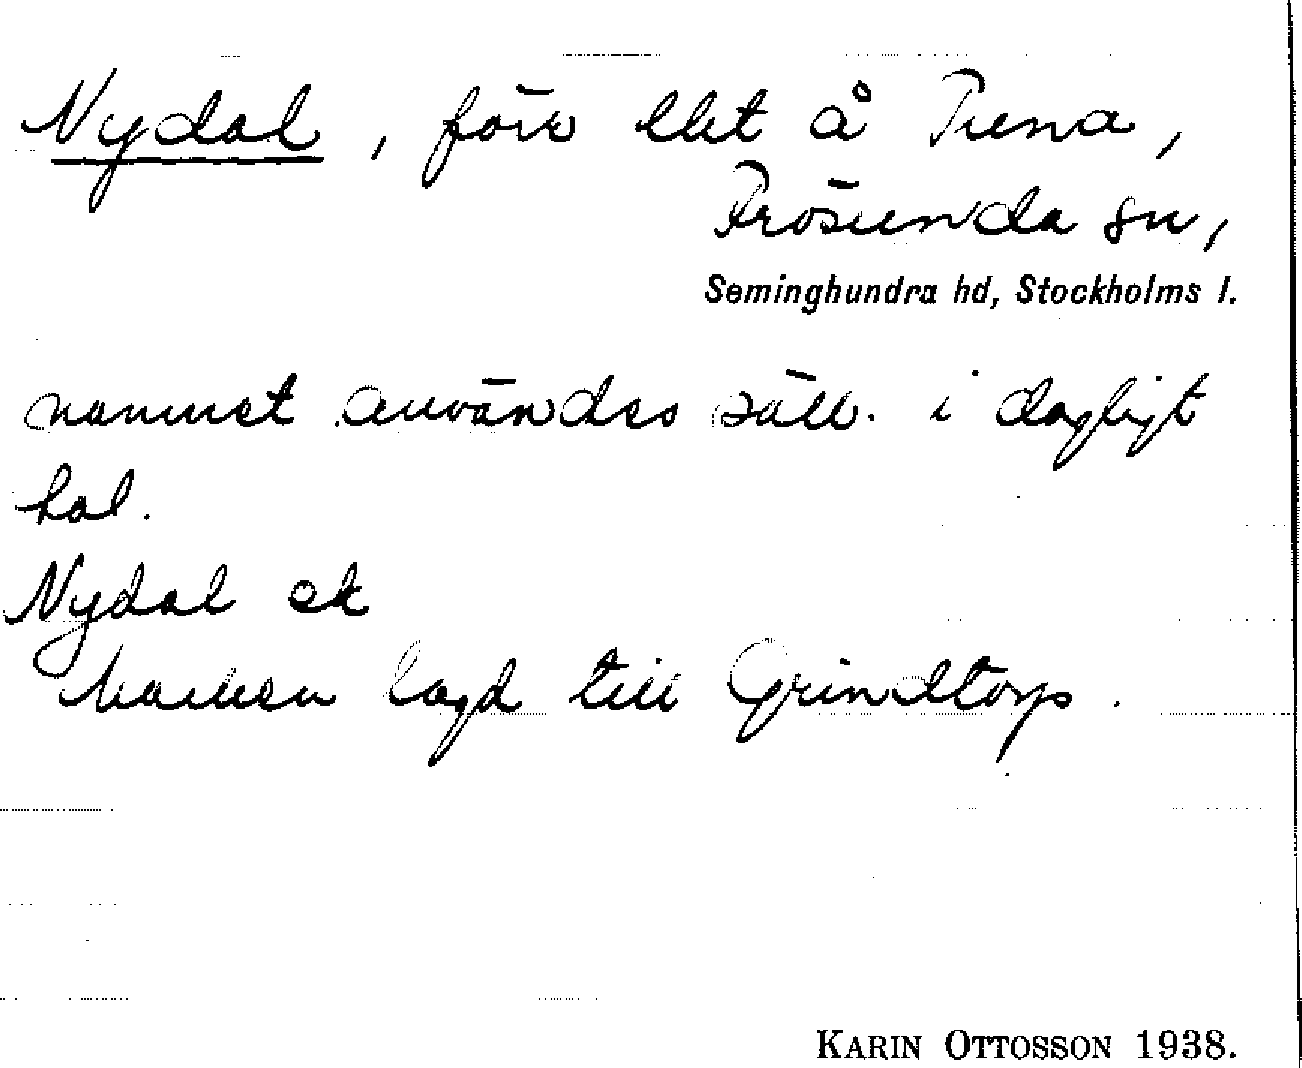 Nydal, förv lht å Tuna,
Frösunda sn,
Seminghundra hd, Stockholms l.
namnet användes säll. i dagligt
tal.
Nydal ek
Marken lagd till Grindtorp.
KARIN OTTOSSON 1938.